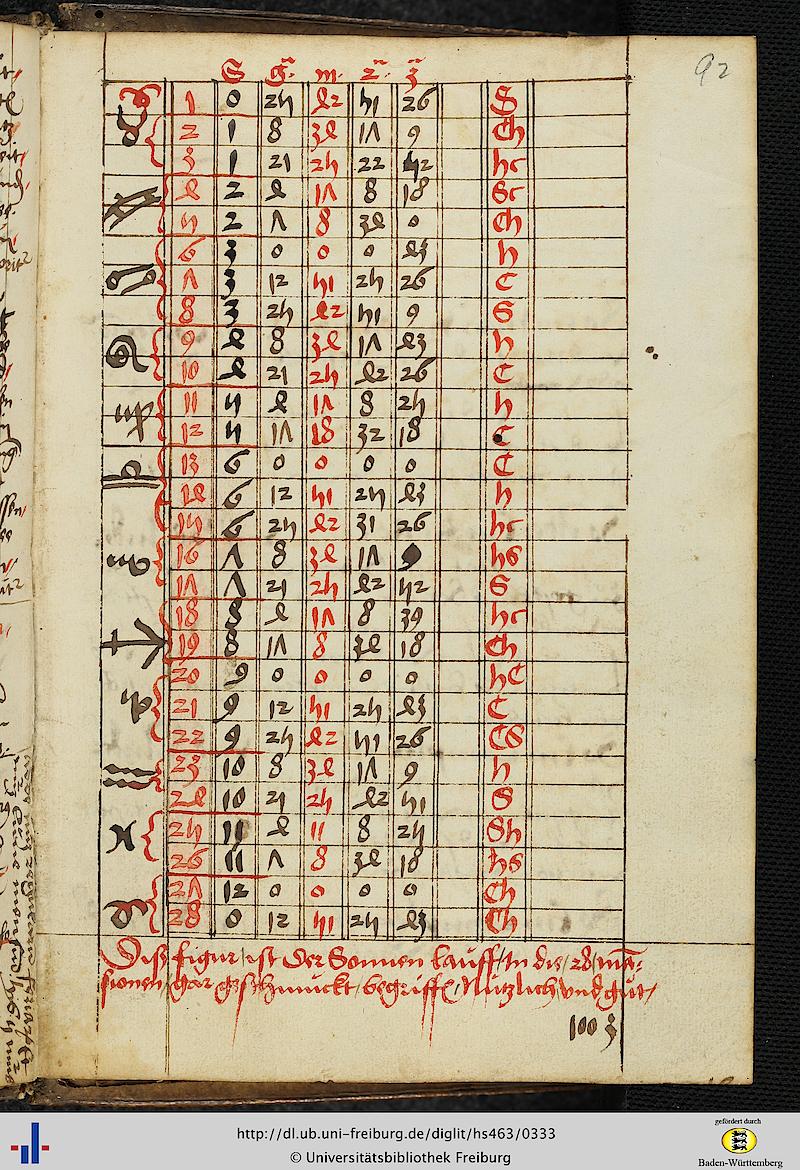 92
S g̃. m. 2̃. 3̃
1 0 25 42 51 26 S
2 1 8 34 17 9 Ch
3 1 21 25 22 52 hc
4 2 4 17 8 18 Sc
5 2 7 8 34 0 Ch
6 3 0 0 0 43 h
7 3 12 51 25 26 C
8 3 25 42 51 9 S
9 4 8 34 17 43 h
10 4 21 25 42 26 C
11 5 4 17 8 25 h
12 5 17 18 32 18 C
13 6 0 0 0 0 C
14 6 12 51 25 43 h
15 6 25 42 31 26 hc
16 7 8 34 17 9 hs
17 7 21 25 42 52 S
18 8 4 17 8 39 hc
19 8 17 8 34 18 Ch
20 9 0 0 0 0 hC
21 9 12 51 25 43 C
22 9 25 42 51 26 CS
23 10 8 34 17 9 h
24 10 21 25 42 51 S
25 11 4 11 8 25 Sh
26 11 7 8 34 18 hs
27 12 0 0 0 0 Ch
28 0 12 51 25 43 Ch
Diß figur ist der Sonnen lauff In die 28 man=
sionen gar geschmückt begriffen Nützlich und gut
100 3
http://dl.ub.uni-freiburg.de/diglit/hs463/0333
© Universitätsbibliothek Freiburg
gefördert durch
Baden-Württemberg